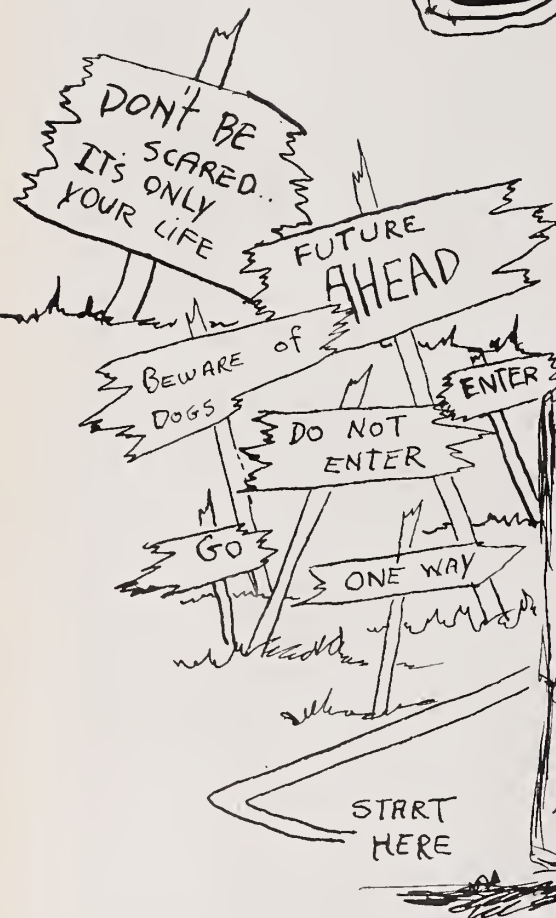 DON't BE
SCARED..
IT's ONLY
YOUR LiFE
FUTURE
AHEAD
BEWARE of
DOGS
ENTER
DO NOT
ENTER
GO
ONE WAY
START
HERE